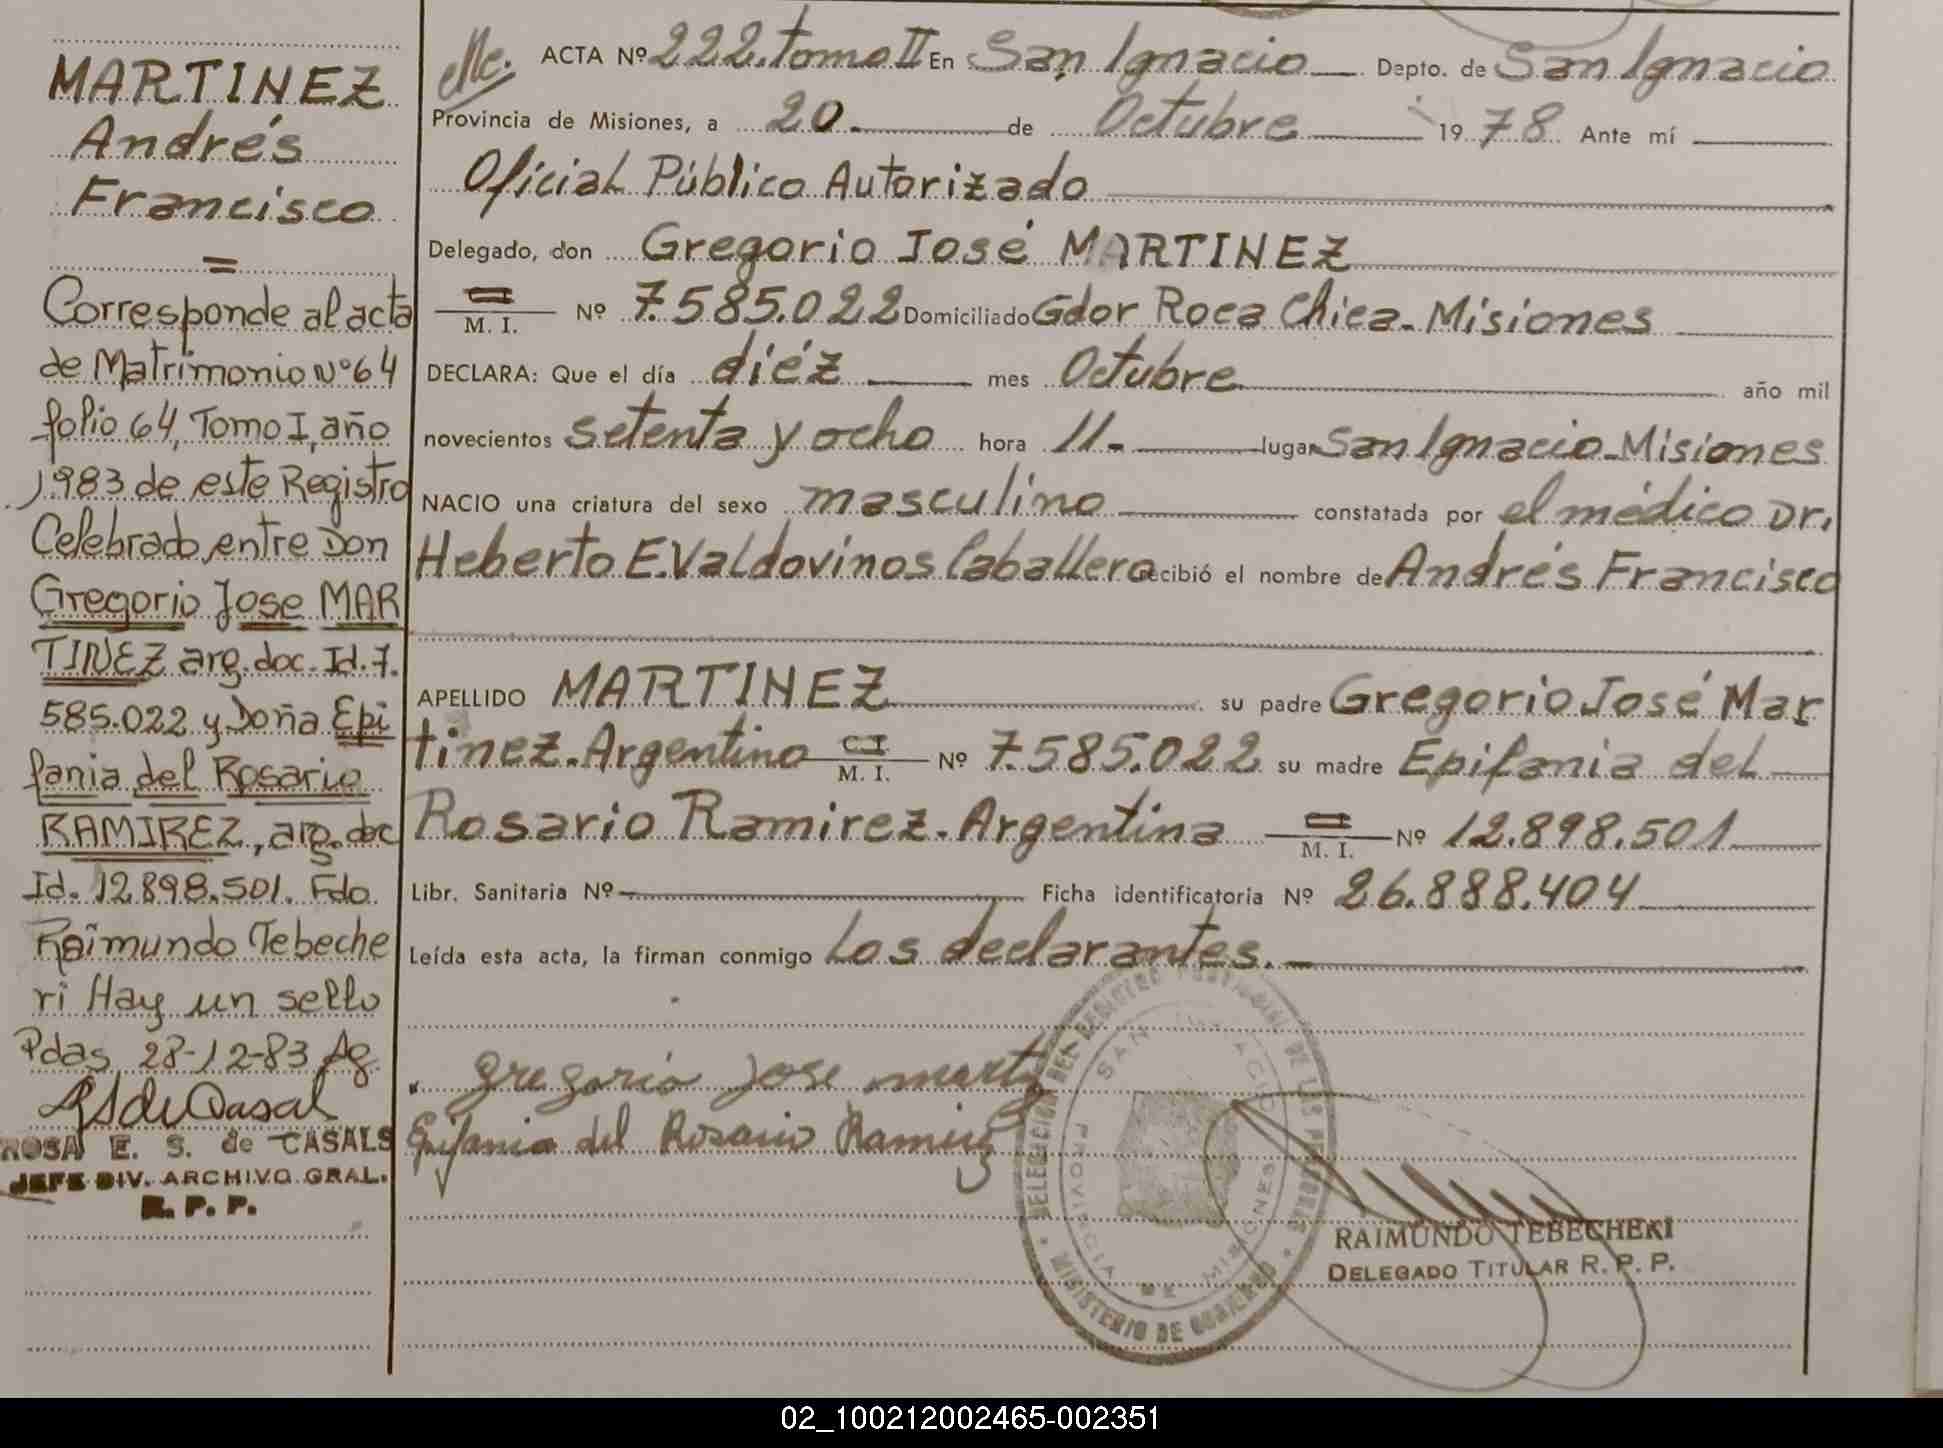 MARTINEZ
Andrés
Francisco
=
Corresponde al acta
de Matrimonio Nº 64
folio 64, Tomo I, año
1983 de este Registro
Celebrado, entre Don
Gregorio Jose MAR
TINEZ arg. doc. Id. 7.
585.022 y Doña Epi
fania del Rosario
RAMIREZ, arg. doc
Id. 12.898.501. Fdo.
Raimundo Tebeche
ri Hay un sello
Pdas, 28-12-83
ROSA E. S. de CASALS
JEFE DIV. ARCHIVO GRAL.
R. P. P.
ACTA Nº 222. tomo II En San Ignacio Depto. de San Ignacio
Provincia de Misiones, a 20 de Octubre 1978 Ante mí
Oficial Público Autorizado
Delegado, don Gregorio José MARTINEZ
C I / M. I. Nº 7.585.022 Domiciliado Gdor Roca Chica - Misiones
DECLARA: Que el día diéz mes Octubre año mil
novecientos setenta y ocho hora 11.- lugar San Ignacio - Misiones
NACIO una criatura del sexo masculino constatada por el médico Dr.
Heberto E. Valdovinos Caballero recibió el nombre de Andrés Francisco
APELLIDO MARTINEZ su padre Gregorio José Mar
tinez. Argentino C I / M. I. Nº 7.585.022 su madre Epifania del
Rosario Ramirez. Argentina C I / M. I. Nº 12.898.501
Libr. Sanitaria Nº Ficha identificatoria Nº 26.888.404
Leída esta acta, la firman conmigo Los declarantes.-
gregorio jose martz
Epifania del Rosario Ramirez
DELEGACION DEL REGISTRO PROVINCIAL DE LAS PERSONAS
SAN IGNACIO
PROVINCIA DE MISIONES
MINISTERIO DE GOBIERNO
RAIMUNDO TEBECHERI
DELEGADO TITULAR R. P. P.
02_100212002465-002351